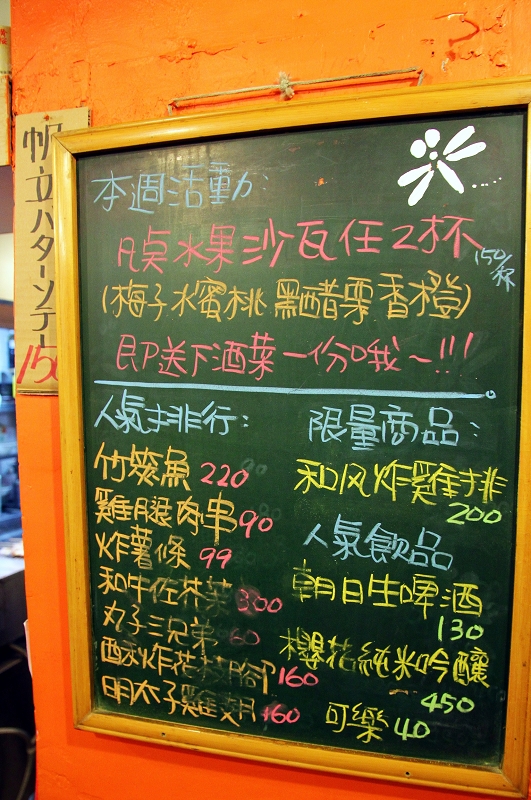 帆立バターソテー
150
本週活動:
凡桌水果沙瓦任2杯
150/杯
(梅子水蜜桃 黑醋栗香橙)
即送下酒菜一份哦~!!!
人氣排行:
竹筴魚 220
雞腿肉串 90
炸薯條 99
和牛佐芥菜 300
丸子三兄弟 60
酥炸花枝腳 160
明太子雞翅 160
限量商品:
和风炸雞排
200
人氣飲品
朝日生啤酒
130
櫻花純米吟釀
450
可樂 40